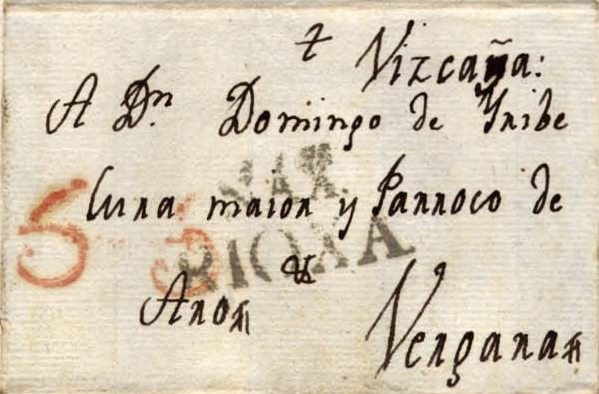 + Vizcaÿa:
A Dn. Domingo de Yribe
Cura maior y Parroco de
Aro
Vergara
NAX.
RIOXA
5 5